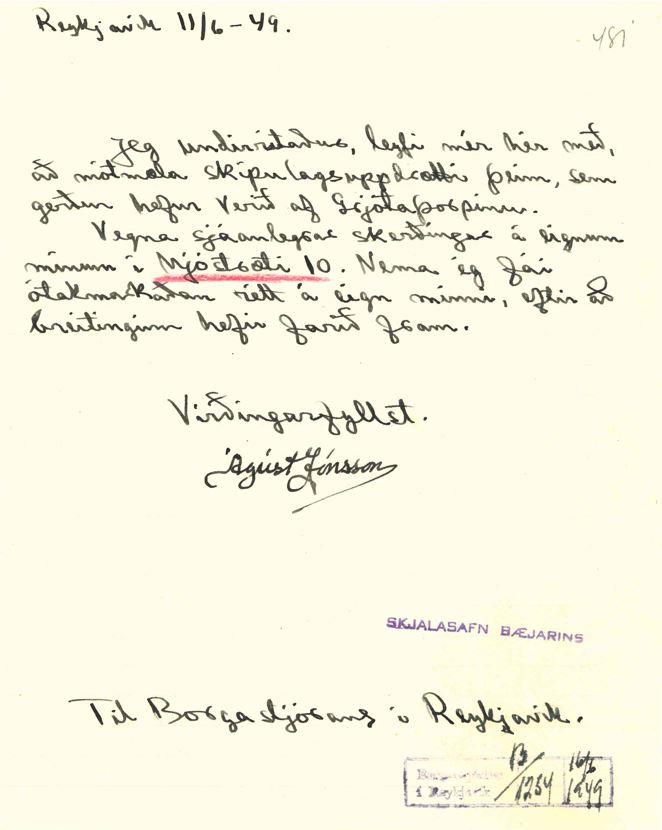 Reykjavik 11/6-49.
481
Jeg undirritaður, leyfi mér hér með,
að mótmæla skipulagsuppdrætti þeim, sem
gerður hefur verið af Grjótaþorpinu.
Vegna sjáanlegrar skerðingar á eignum
mínum í Mjóstræti 10. Nema ég fái
ótakmarkaðan rétt á eign minni, eftir að
breitinginn hefir farið fram.
Virðingarfyllst.
Ágúst Jónsson
SKJALASAFN BÆJARINS
Til Borgastjórans í Reykjavik.
B/1254 16/6 1949
í Reykjavík